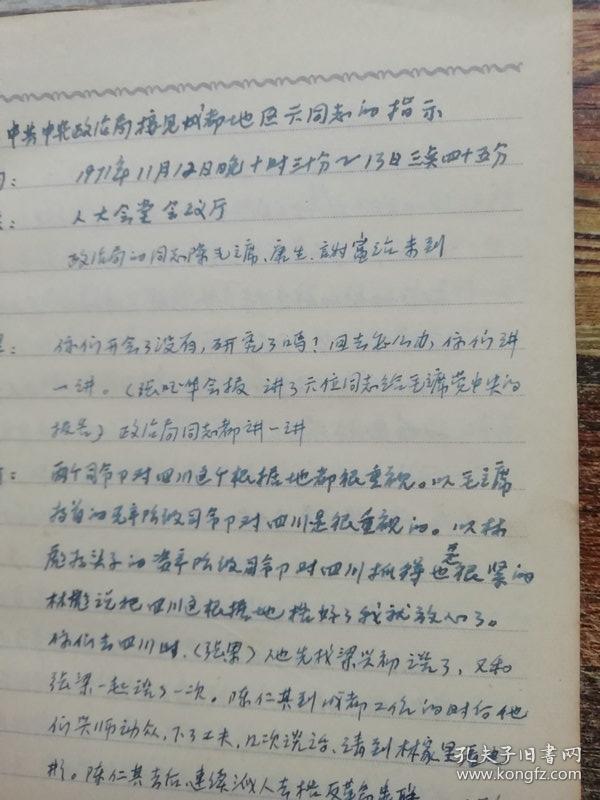 中共中央政治局接见成都地区六同志的指示
1971年11月12日晚十时三十分~13日三点四十五分
人大会堂会议厅
政治局的同志除毛主席、康生、謝富治未到
你们开会了没有,研究了吗?回去怎么办,你们讲
一讲。(张国华会报 讲了六位同志给毛主席党中央的
报告)政治局同志都讲一讲
两个司令卩对四川这个根据地都很重视。以毛主席
为首的无产阶级司令卩对四川是很重视的。以林
彪为头子的资产阶级司令卩对四川抓得也是很紧的
林彪说把四川这根据地搞好了我就放心了。
你们去四川时,(张梁)他先找梁兴初谈了,又和
张梁一起谈了一次。陈仁其到成都工作的时候他
们兴师动众,下了工夫,几次谈话、请到林家里
形。陈仁其去后,连续派人去搞反革命串联
孔夫子旧書网
www.kongfz.com